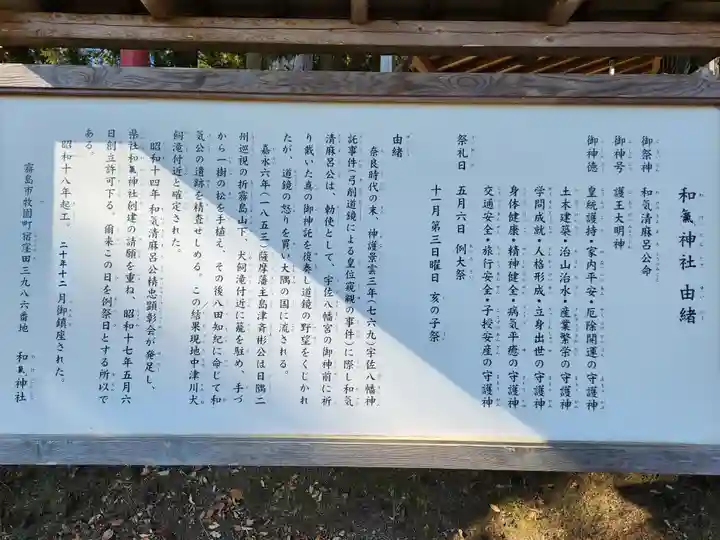 和氣神社 由緒
御祭神 和氣清麻呂公命
御神号 護王大明神
御神徳 皇統護持・家内平安・厄除開運の守護神
土木建築・治山治水・産業繁栄の守護神
学問成就・人格形成・立身出世の守護神
身体健康・精神健全・病気平癒の守護神
交通安全・旅行安全・子授安産の守護神
祭礼日 五月六日 例大祭
十一月第三日曜日 亥の子祭
由緒
奈良時代の末、神護景雲三年(七六九)宇佐八幡神
託事件(弓削道鏡による皇位窺覦の事件)に際し和気
清麻呂公は、勅使として、宇佐八幡宮の御神前に祈
り戴いた真の御神託を復奏し道鏡の野望をくじかれ
たが、道鏡の怒りを買い大隅の国に流される。
嘉永六年(一八五三)薩摩藩主島津斉彬公は日隅二
州巡視の折霧島山下、犬飼滝付近に篭を駐め、手づ
から一樹の松を手植え、その後八田知紀に命じて和
気公の遺跡を精査せしめる。この結果現地中津川犬
飼滝付近と確定された。
昭和十四年和気清麻呂公精忠顕彰会が発足し、
県社和氣神社創建の請願を重ね、昭和十七年五月六
日創立許可下る。爾来この日を例祭日とする所以で
ある。
昭和十八年起工。二十年十二月御鎮座された。
霧島市牧園町宿窪田三九八六番地 和氣神社